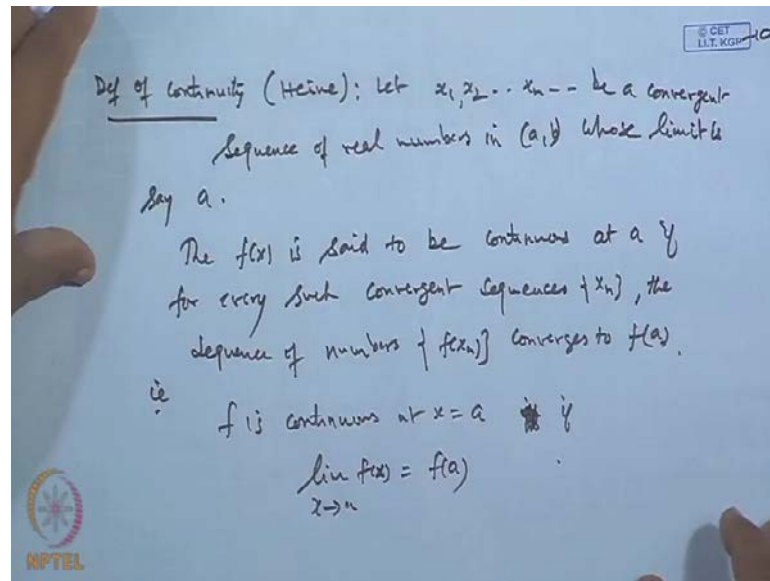 © CET
I.I.T. KGP
10
Def of continuity (Heine): Let x₁, x₂ .. xₙ -- be a convergent
sequence of real numbers in (a,b) whose limit is
say a.
The f(x) is said to be continuous at a if
for every such convergent sequences {xₙ}, the
sequence of numbers { f(xₙ)} converges to f(a).
ie
f is continuous at x = a if
lim f(x) = f(a)
x→a
NPTEL